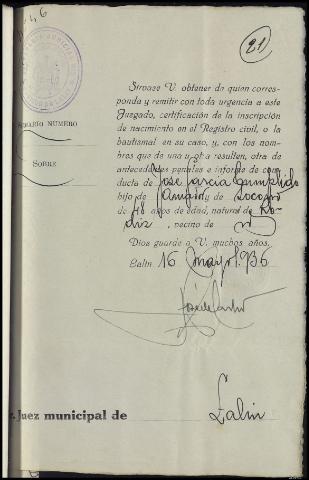 21
Sírvase V. obtener de quien corres-
ponda y remitir con toda urgencia a este
Juzgado, certificación de la inscripción
de nacimiento en el Registro civil, o la
bautismal en su caso, y, con los nom-
bres que de una y otra resulten, otra de
antecedentes penales e informe de con-
ducta de José García Cumplido
hijo de y de Socorro
de 48 años de edad, natural de Ro-
diz, vecino de
Dios guarde a V. muchos años.
Lalín 16 Mayo 1.936
NUMERO
SOBRE
Juez municipal de Lalin